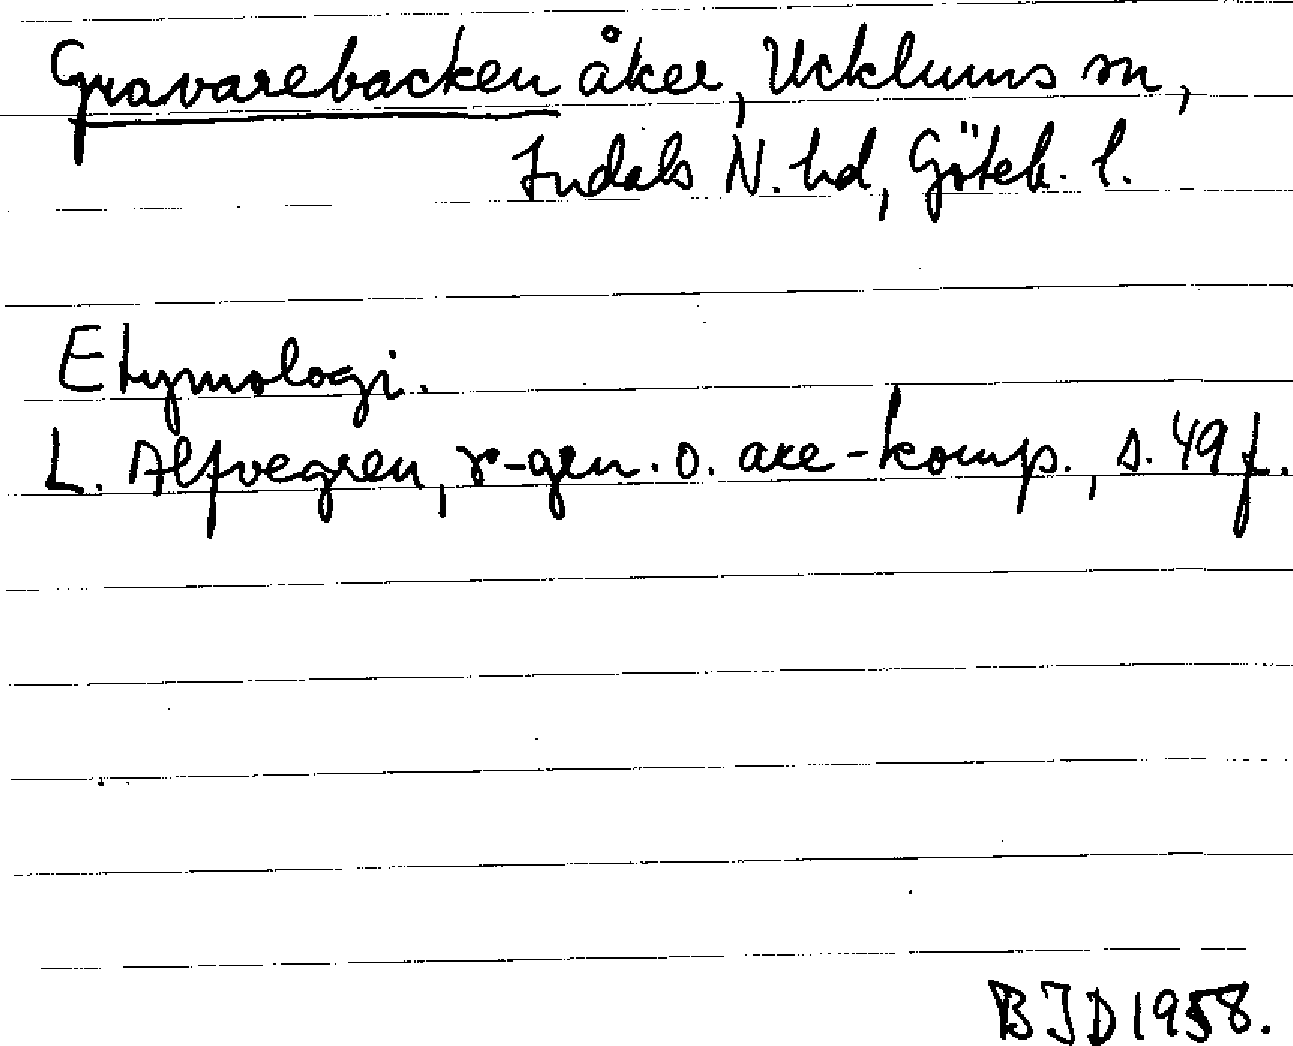 Gravarebacken åker, Ucklums sn,
Indals N. hd, Göteb. l.
Etymologi.
L. Alfvegren, r-gen. o. are-komp., s. 49 f.
BJD 1958.